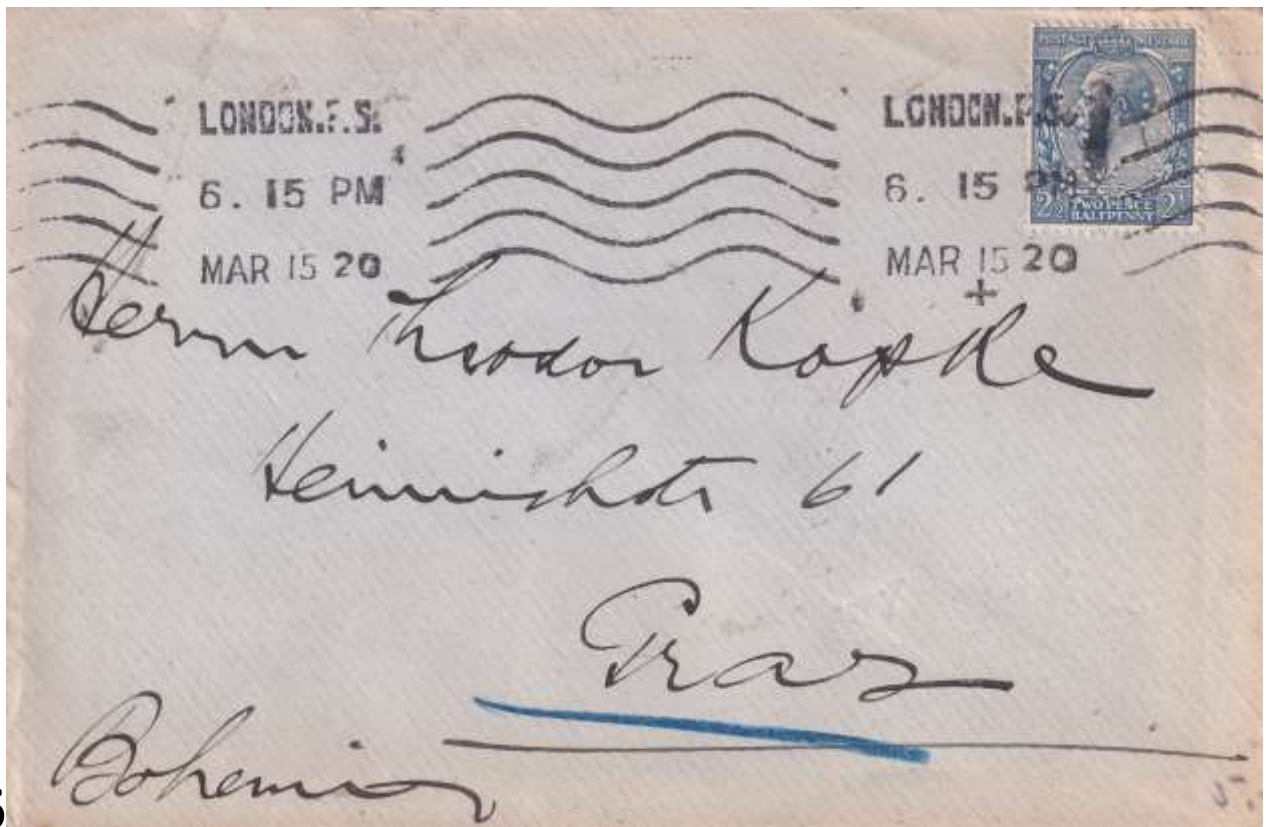 LONDON.F.S.
6. 15 PM
MAR 15 20
LONDON.F.S.
6. 15 PM
MAR 15 20
+
POSTAGE REVENUE
2½ TWO PENCE 2½
HALFPENNY
Herrn Theodor Köpke
Heinrichstr 61
Graz
Bohemia